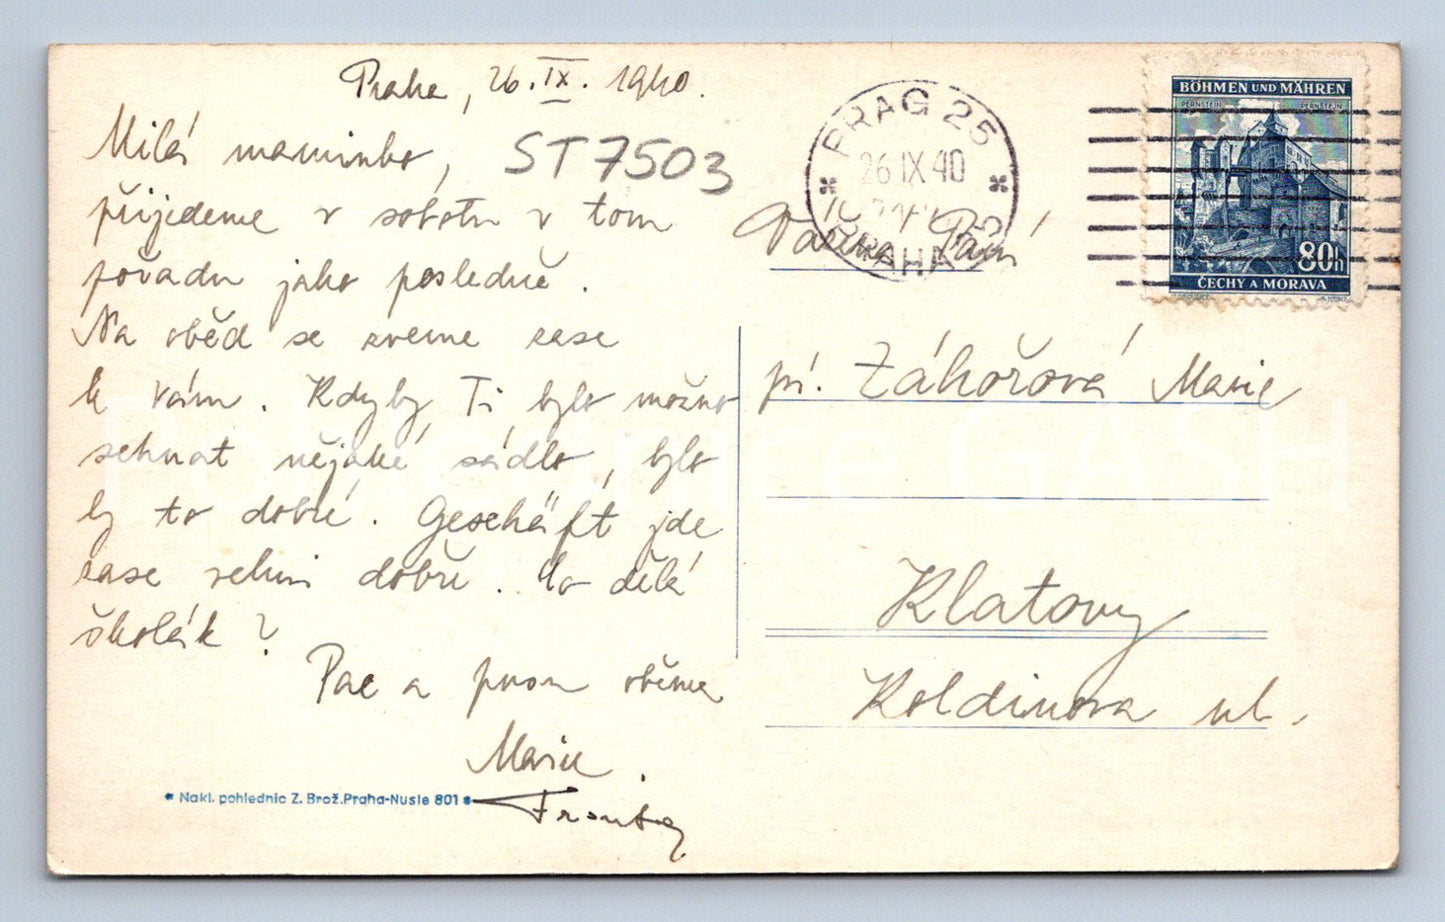 Praha, 26.IX.1940.
Milá maminko,
ST7503
přijedeme v sobotu v tom
pořadu jako posledně.
Na oběd se zveme zase
k vám. Kdyby Ti bylo možno
sehnat nějaké sádlo, bylo
by to dobré. Geschäft jde
zase velmi dobře. Co dělá
školák?
Pac a pusu oběma
Marie.
* Nakl. pohlednic Z. Brož. Praha-Nusle 801 *
PRAG 25
26 IX 40
PRAHA 25
BÖHMEN UND MÄHREN
PERNSTEIN PERNSTEIN
80h
ČECHY A MORAVA
Vážená Paní
pí. Záhořová Marie
Klatovy
Koldinova ul.